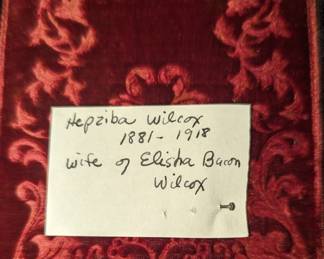 Hepziba Wilcox
1881-1918
wife of Elisha Bacon
Wilcox